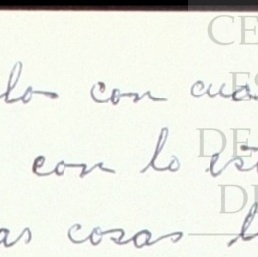 los con cua
con lo es
as cosas l
CE
ES
DE
D